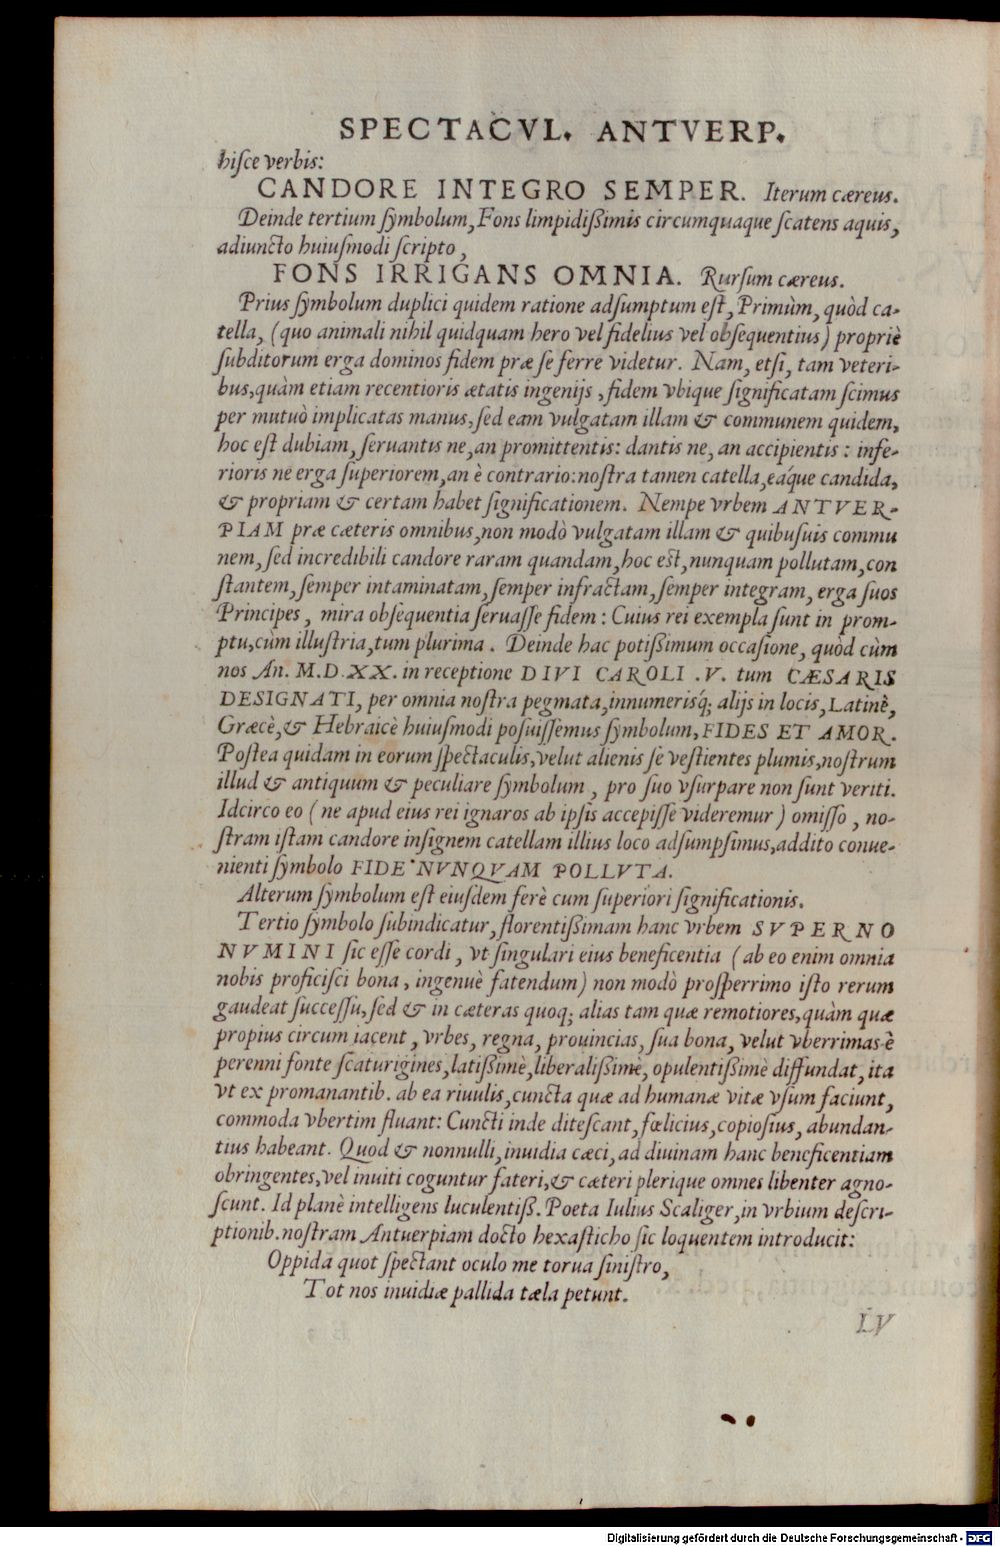 SPECTACVL. ANTVERP.
hisce verbis:
CANDORE INTEGRO SEMPER. Iterum cæreus.
Deinde tertium ſymbolum, Fons limpidißimis circumquaque ſcatens aquis,
adiuncto huiuſmodi ſcripto,
FONS IRRIGANS OMNIA. Rurſum cæreus.
Prius ſymbolum duplici quidem ratione adſumptum eſt, Primùm, quòd ca-
tella, (quo animali nihil quidquam hero vel fidelius vel obſequentius) propriè
ſubditorum erga dominos fidem præ ſe ferre videtur. Nam, etſi, tam veteri-
bus, quàm etiam recentioris ætatis ingenijs, fidem vbique ſignificatam ſcimus
per mutuò implicatas manus, ſed eam vulgatam illam & communem quidem,
hoc eſt dubiam, ſeruantis ne, an promittentis: dantis ne, an accipientis: infe-
rioris ne erga ſuperiorem, an è contrario: noſtra tamen catella, eáque candida,
& propriam & certam habet ſignificationem. Nempe vrbem ANTVER-
PIAM præ cæteris omnibus, non modò vulgatam illam & quibuſuis commu
nem, ſed incredibili candore raram quandam, hoc eſt, nunquam pollutam, con
ſtantem, ſemper intaminatam, ſemper infractam, ſemper integram, erga ſuos
Principes, mira obſequentia ſeruaſſe fidem: Cuius rei exempla ſunt in prom-
ptu, cùm illuſtria, tum plurima. Deinde hac potißimum occaſione, quòd cùm
nos An. M.D.XX. in receptione DIVI CAROLI .V. tum CÆSARIS
DESIGNATI, per omnia noſtra pegmata, innumerisq́; alijs in locis, Latinè,
Græcè, & Hebraicè huiuſmodi poſuiſſemus ſymbolum, FIDES ET AMOR.
Poſtea quidam in eorum ſpectaculis, velut alienis ſe veſtientes plumis, noſtrum
illud & antiquum & peculiare ſymbolum, pro ſuo vſurpare non ſunt veriti.
Idcirco eo (ne apud eius rei ignaros ab ipſis accepiſſe videremur) omiſſo, no-
ſtram iſtam candore inſignem catellam illius loco adſumpſimus, addito conue-
nienti ſymbolo FIDE NVNQVAM POLLVTA.
Alterum ſymbolum eſt eiuſdem ferè cum ſuperiori ſignificationis.
Tertio ſymbolo ſubindicatur, florentißimam hanc vrbem SVPERNO
NVMINI ſic eſſe cordi, vt ſingulari eius beneficentia (ab eo enim omnia
nobis proficiſci bona, ingenuè fatendum) non modò proſperrimo iſto rerum
gaudeat ſucceſſu, ſed & in cæteras quoq; alias tam quæ remotiores, quàm quæ
propius circum iacent, vrbes, regna, prouincias, ſua bona, velut vberrimas è
perenni fonte ſcaturigines, latißimè, liberalißimè, opulentißimè diffundat, ita
vt ex promanantib. ab ea riuulis, cuncta quæ ad humanæ vitæ vſum faciunt,
commoda vbertim fluant: Cuncti inde diteſcant, fœlicius, copioſius, abundan-
tius habeant. Quod & nonnulli, inuidia cæci, ad diuinam hanc beneficentiam
obringentes, vel inuiti coguntur fateri, & cæteri plerique omnes libenter agno-
ſcunt. Id planè intelligens luculentiß. Poeta Iulius Scaliger, in vrbium deſcri-
ptionib. noſtram Antuerpiam docto hexaſticho ſic loquentem introducit:
Oppida quot ſpectant oculo me torua ſiniſtro,
Tot nos inuidiæ pallida tæla petunt.
LV
Digitalisierung gefördert durch die Deutsche Forschungsgemeinschaft - DFG